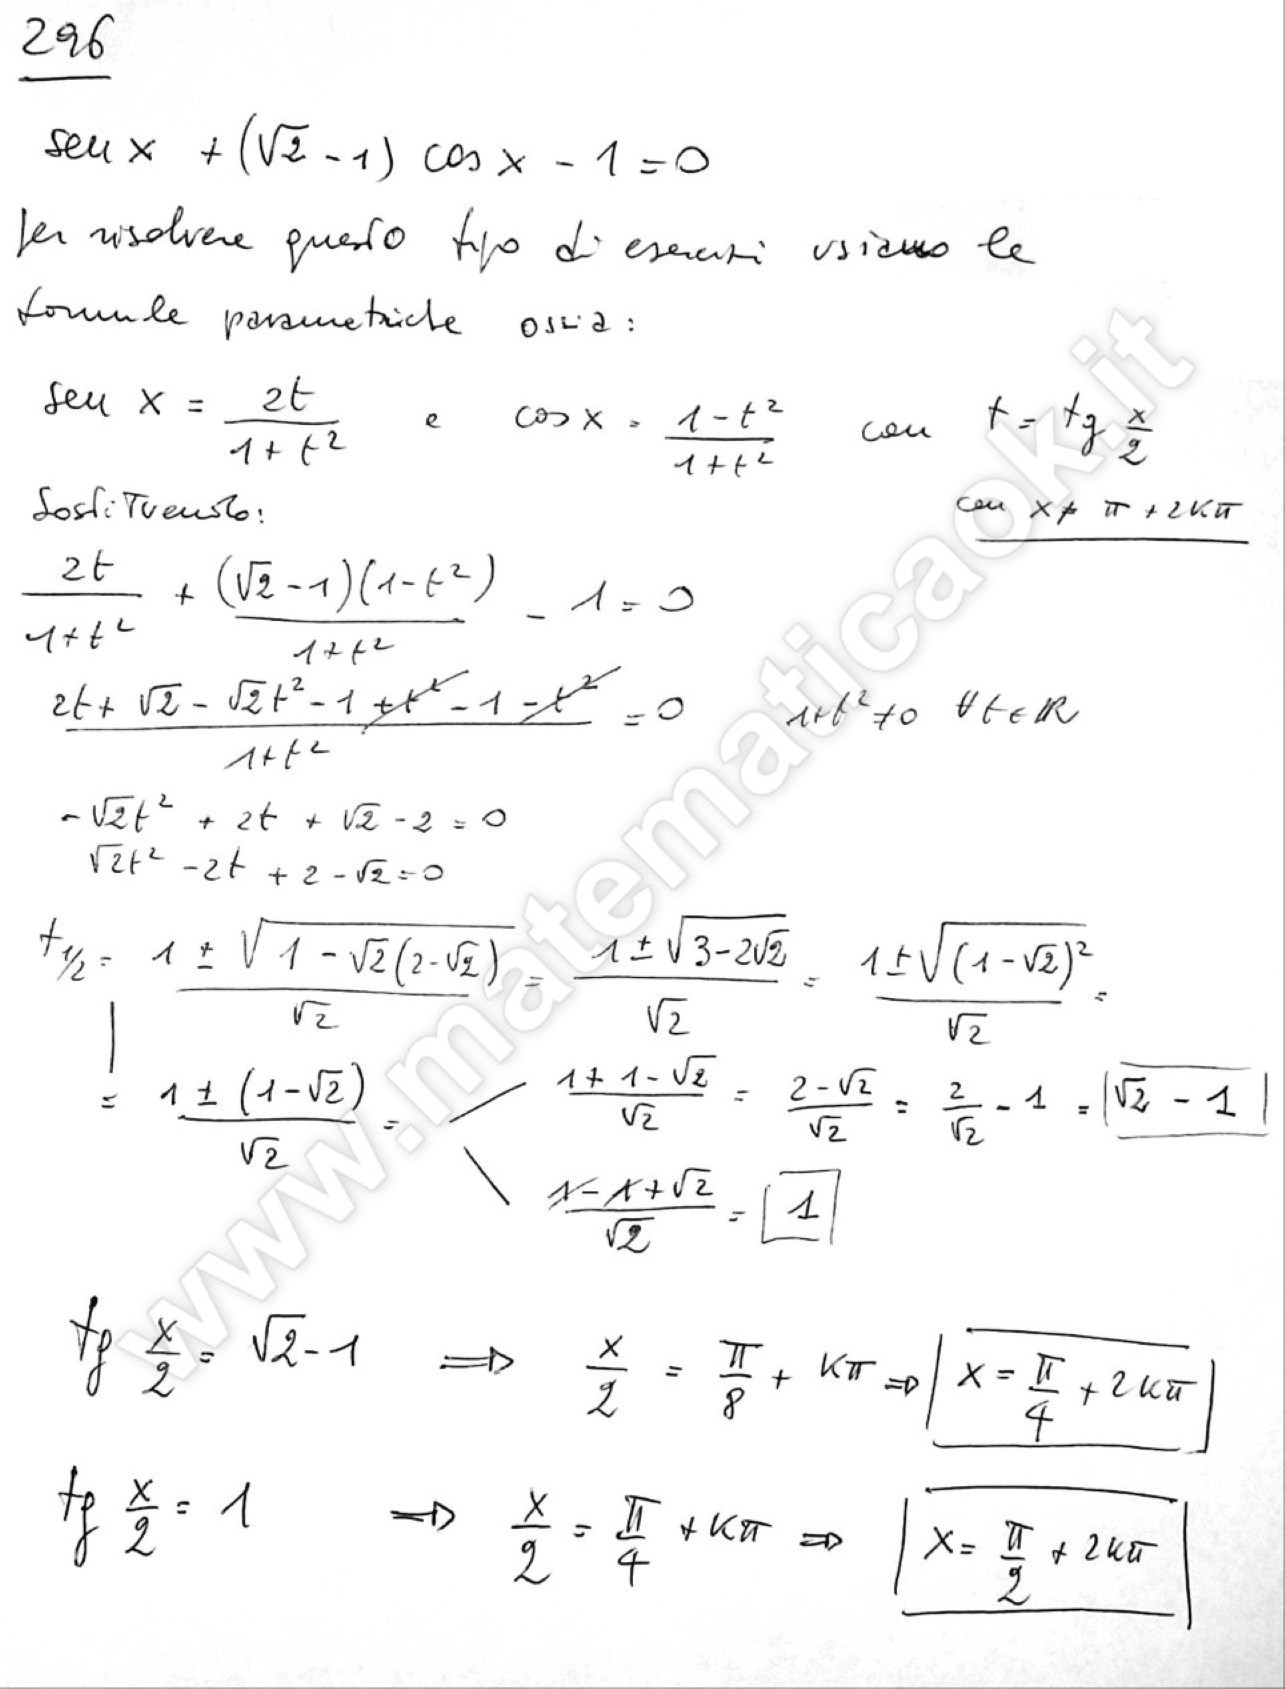 296
sen x + (√2 - 1) cos x - 1 = 0
Per risolvere questo tipo di esercizi usiamo le
formule parametriche ossia:
sen x = 2t/(1+t²) e cos x = (1-t²)/(1+t²) con t = tg x/2
Sostituendo: con x ≠ π + 2kπ
2t/(1+t²) + (√2-1)(1-t²)/(1+t²) - 1 = 0
(2t + √2 - √2t² - 1 + t² - 1 - t²)/(1+t²) = 0 1+t² ≠ 0 ∀t∈R
-√2t² + 2t + √2 - 2 = 0
√2t² - 2t + 2 - √2 = 0
t1/2 = (1 ± √(1 - √2(2-√2)))/√2 = (1 ± √(3-2√2))/√2 = (1 ± √((1-√2)²))/√2 =
= (1 ± (1-√2))/√2 = (1+1-√2)/√2 = (2-√2)/√2 = 2/√2 - 1 = √2 - 1
(1-1+√2)/√2 = 1
tg x/2 = √2-1 ⇒ x/2 = π/8 + kπ ⇒ x = π/4 + 2kπ
tg x/2 = 1 ⇒ x/2 = π/4 + kπ ⇒ x = π/2 + 2kπ
www.matematicaok.it